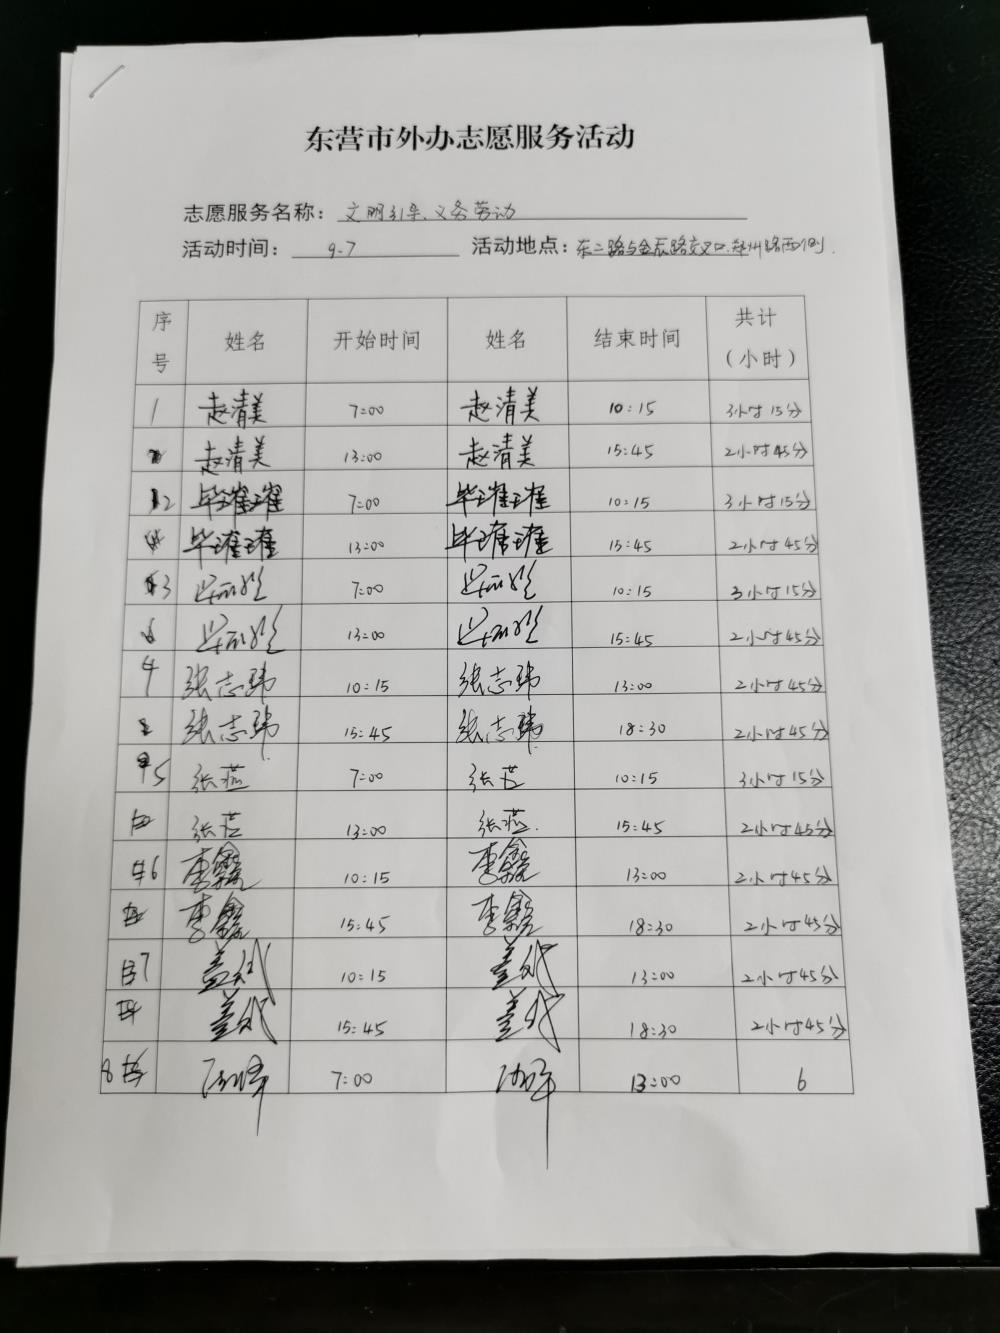 东营市外办志愿服务活动
志愿服务名称：文明引导、义务劳动
活动时间：9.7 活动地点：东二路与金辰路交叉口、郑州路西侧.
序号 姓名 开始时间 姓名 结束时间 共计（小时）
1 赵清美 7:00 赵清美 10:15 3小时15分
赵清美 13:00 赵清美 15:45 2小时45分
2 毕璀璀 7:00 毕璀璀 10:15 3小时15分
毕璀璀 13:00 毕璀璀 15:45 2小时45分
3 7:00 10:15 3小时15分
13:00 15:45 2小时45分
4 张志玮 10:15 张志玮 13:00 2小时45分
张志玮 15:45 张志玮 18:30 2小时45分
5 张燕 7:00 张燕 10:15 3小时15分
张燕 13:00 张燕 15:45 2小时45分
6 李鑫 10:15 李鑫 13:00 2小时45分
李鑫 15:45 李鑫 18:30 2小时45分
7 盖斌 10:15 盖斌 13:00 2小时45分
盖斌 15:45 盖斌 18:30 2小时45分
8 7:00 13:00 6